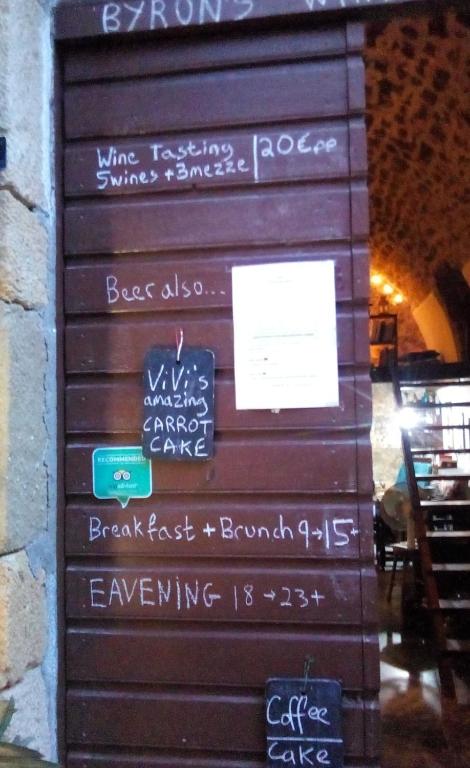 BYRON'S
Wine Tasting
5wines + 3mezze
20€pp
Beer also...
ViVi's
amazing
CARROT
CAKE
RECOMMENDED
Breakfast + Brunch 9→15+
EAVENING 18→23+
Coffee
Cake